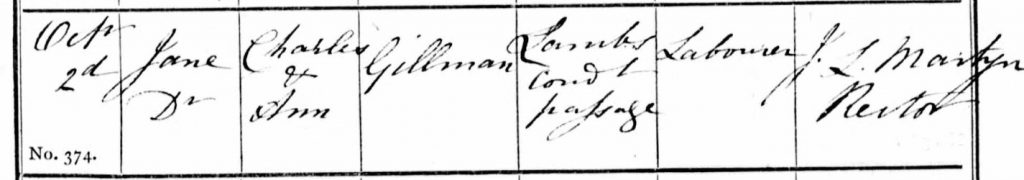 Octr
2d
Jane
Dr
Charles
&
Ann
Gillman
Lambs
Condt
passage
Labourer
J. L. Martyn
Rector
No. 374.